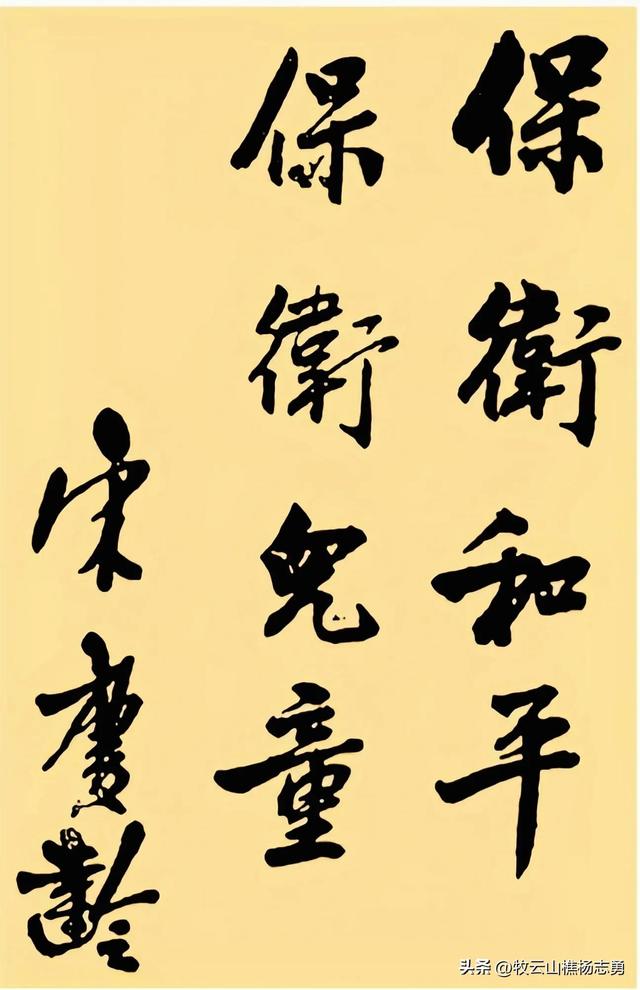 保衛和平
保衛兒童
宋慶齡
头条 @牧云山樵杨志勇